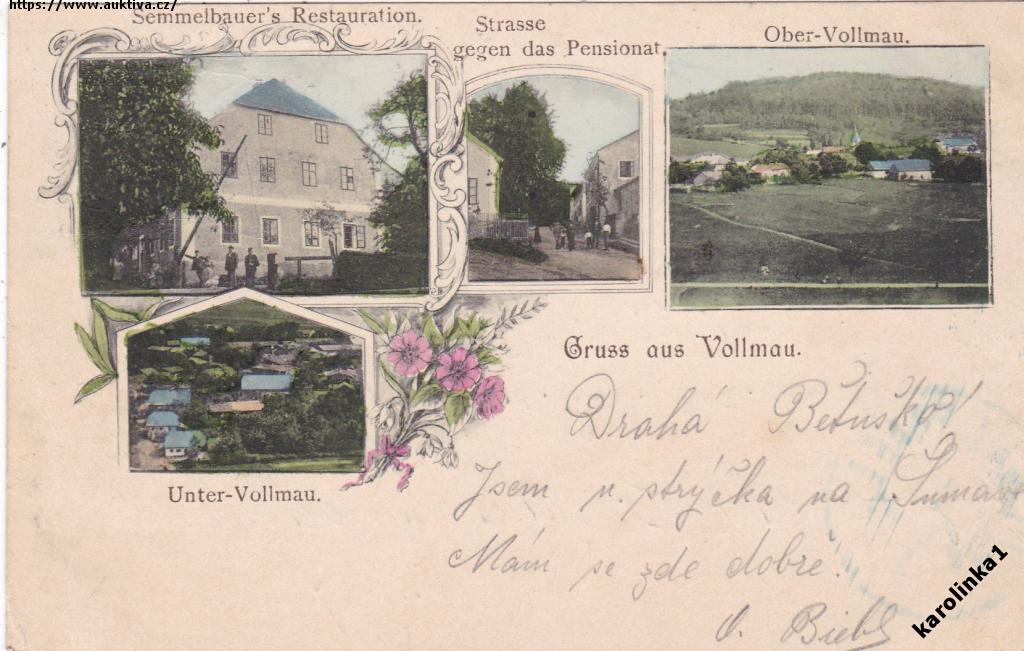 https://www.auktiva.cz/
Semmelbauer's Restauration.
Strasse
gegen das Pensionat.
Ober-Vollmau.
Unter-Vollmau.
Gruss aus Vollmau.
Drahá Bětuško!
Jsem u strýčka na Šumavě
Mám se zde dobře.
karolinka1